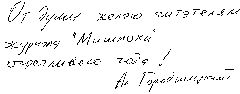 От души желаю читателям
журнала "Мишпоха"
счастливого года!
Ал. Городницкий